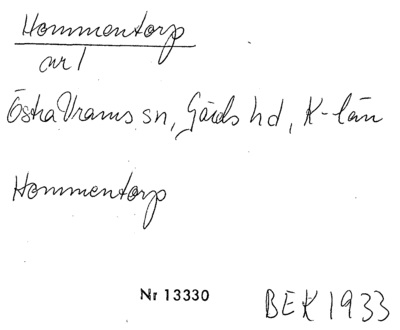 Hommentorp
nr 1
Östra Vrams sn, Gärds hd, K-län
Hommentorp
Nr 13330
BEK 1933